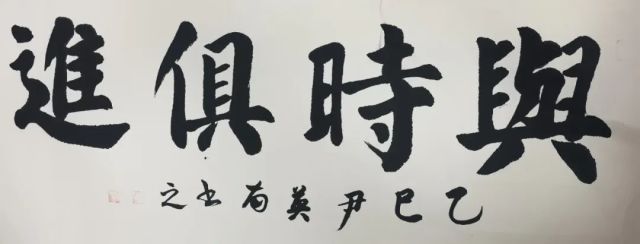 與時俱進
乙巳尹英南书之